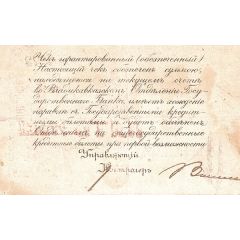 Чекъ гарантированный (обезпеченный)
Настоящій чекъ обезпеченъ суммою,
находящеюся на текущемъ счету
во Владикавказскомъ Отдѣленіи Госу-
дарственнаго Банка, имѣетъ хожденіе
наравнѣ съ Государственными кредит-
ными билетами и будетъ
на общегосударственные
кредитные билеты при первой возможности
Управляющій
Контролеръ